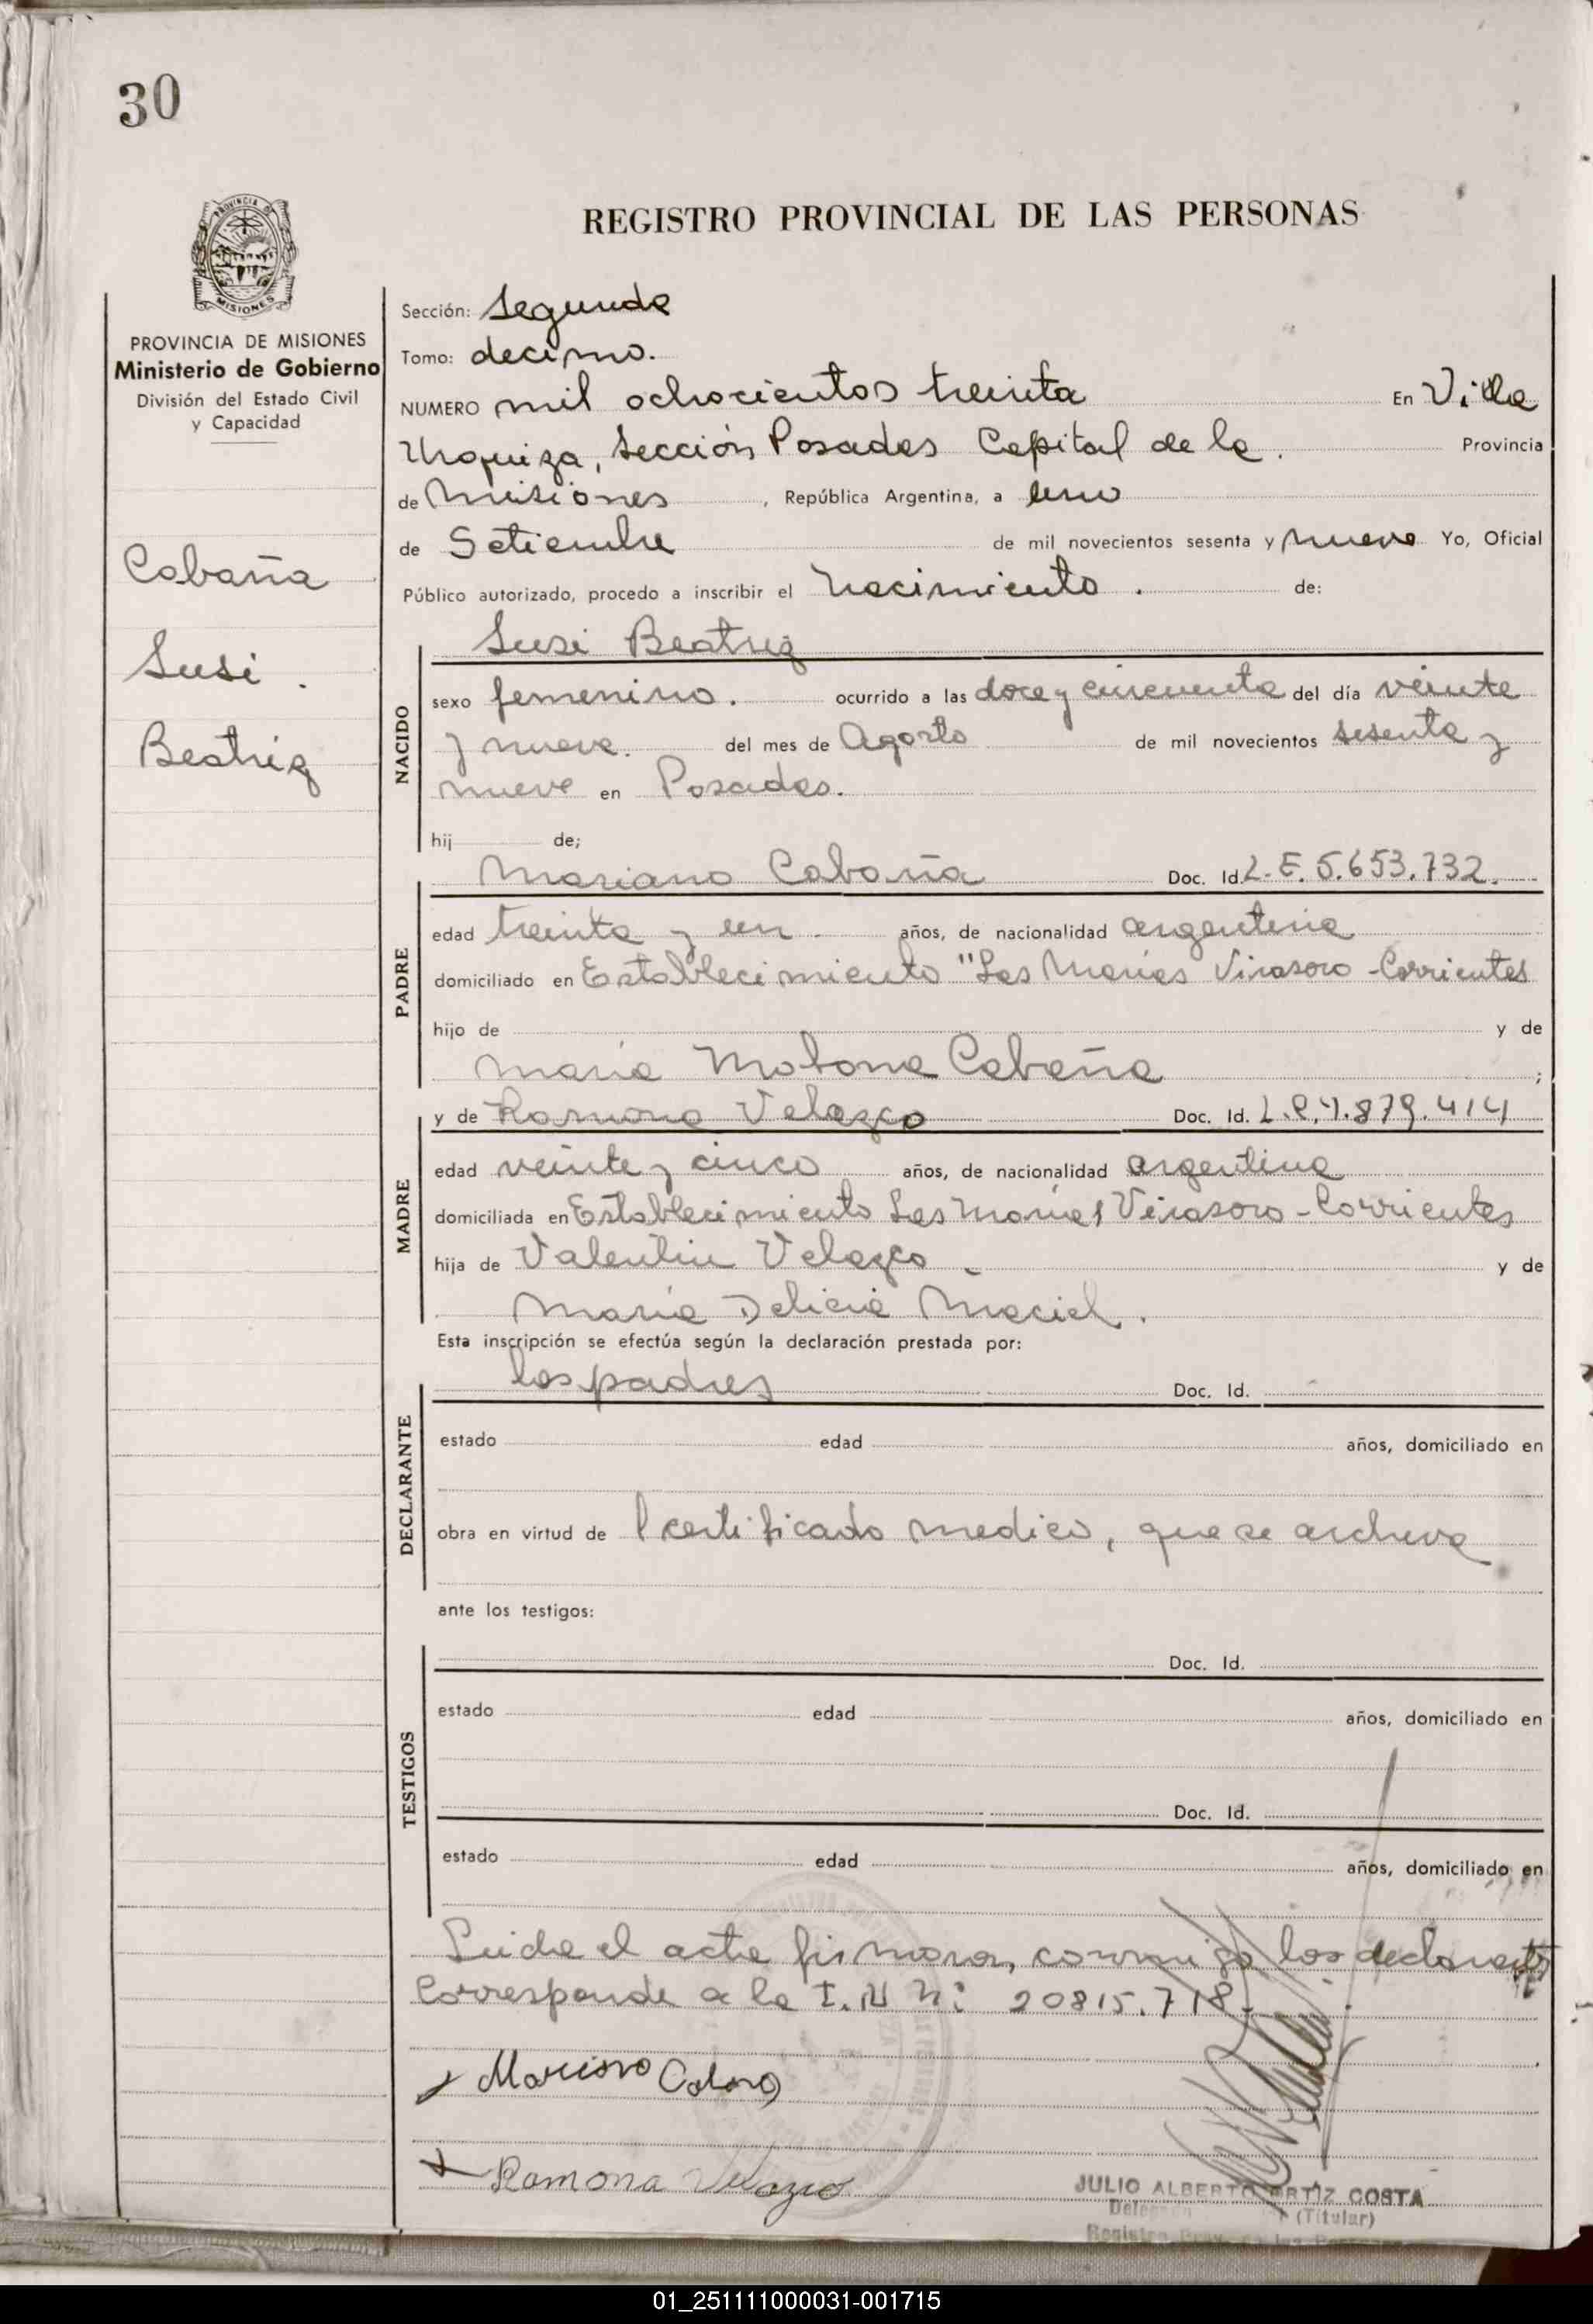 30
PROVINCIA DE MISIONES
MISIONES
PROVINCIA DE MISIONES
Ministerio de Gobierno
División del Estado Civil
y Capacidad
Cabaña
Susi.
Beatriz
REGISTRO PROVINCIAL DE LAS PERSONAS
Sección: Segunda
Tomo: decimo.
NUMERO mil ochocientos treinta En Villa
Urquiza, Sección Posadas Capital de la. Provincia
de Misiones, República Argentina, a uno
de Setiembre de mil novecientos sesenta y nueve Yo, Oficial
Público autorizado, procedo a inscribir el Nacimiento. de:
NACIDO
Susi Beatriz
sexo femenino. ocurrido a las doce y cincuenta del día veinte
y nueve. del mes de Agosto de mil novecientos sesenta y
nueve en Posadas.
hij de;
PADRE
Mariano Cabaña Doc. Id. L.E. 5.653.732.
edad treinta y un. años, de nacionalidad argentina
domiciliado en Establecimiento "Las Marias Virasoro - Corrientes
hijo de y de
Maria Cabaña ;
MADRE
y de Ramona Velazco Doc. Id. L.C. 4.879.414
edad veinte y cinco años, de nacionalidad argentina
domiciliada en Establecimiento Las Marias Virasoro - Corrientes
hija de Valentin Velazco y de
Maria Delicia Maciel.
Esta inscripción se efectúa según la declaración prestada por:
DECLARANTE
los padres Doc. Id.
estado edad años, domiciliado en
obra en virtud de l certificado medico, que se archiva
ante los testigos:
TESTIGOS
Doc. Id.
estado edad años, domiciliado en
Doc. Id.
estado edad años, domiciliado en
Leida el acta firmaron, conmigo los declarantes
Corresponde a la I.N N: 20815.718.
Mariano Cabaña
Ramona Velazco
JULIO ALBERTO ORTIZ COSTA
(Titular)
01_251111000031-001715